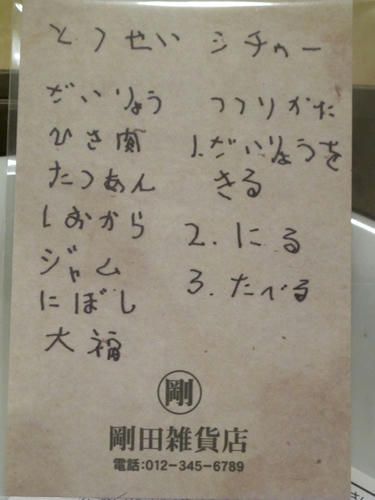 とくせい シチュー
ざいりょう
ひき肉
たくあん
しおから
ジャム
にぼし
大福
つくりかた
1.ざいりょうを
きる
2.にる
3.たべる
剛
剛田雑貨店
電話:012-345-6789